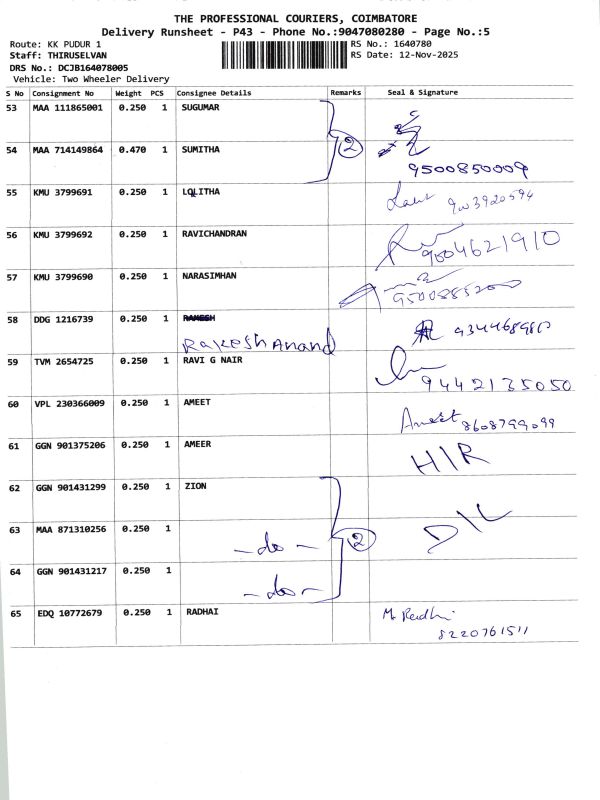 THE PROFESSIONAL COURIERS, COIMBATORE
Delivery Runsheet - P43 - Phone No.:9047080280 - Page No.:5
Route: KK PUDUR 1 RS No.: 1640780
Staff: THIRUSELVAN RS Date: 12-Nov-2025
DRS No.: DCJB164078005
Vehicle: Two Wheeler Delivery
S No Consignment No Weight PCS Consignee Details Remarks Seal & Signature
53 MAA 111865001 0.250 1 SUGUMAR
2
54 MAA 714149864 0.470 1 SUMITHA
9500850009
55 KMU 3799691 0.250 1 LOLITHA
56 KMU 3799692 0.250 1 RAVICHANDRAN
9004621910
57 KMU 3799690 0.250 1 NARASIMHAN
58 DDG 1216739 0.250 1 RAMESH
Rakesh Anand
59 TVM 2654725 0.250 1 RAVI G NAIR
9442135050
60 VPL 230366009 0.250 1 AMEET
Ameet 8608799099
61 GGN 901375206 0.250 1 AMEER
H/R
62 GGN 901431299 0.250 1 ZION
63 MAA 871310256 0.250 1
-do- 2
64 GGN 901431217 0.250 1
-do-
65 EDQ 10772679 0.250 1 RADHAI
8220761511